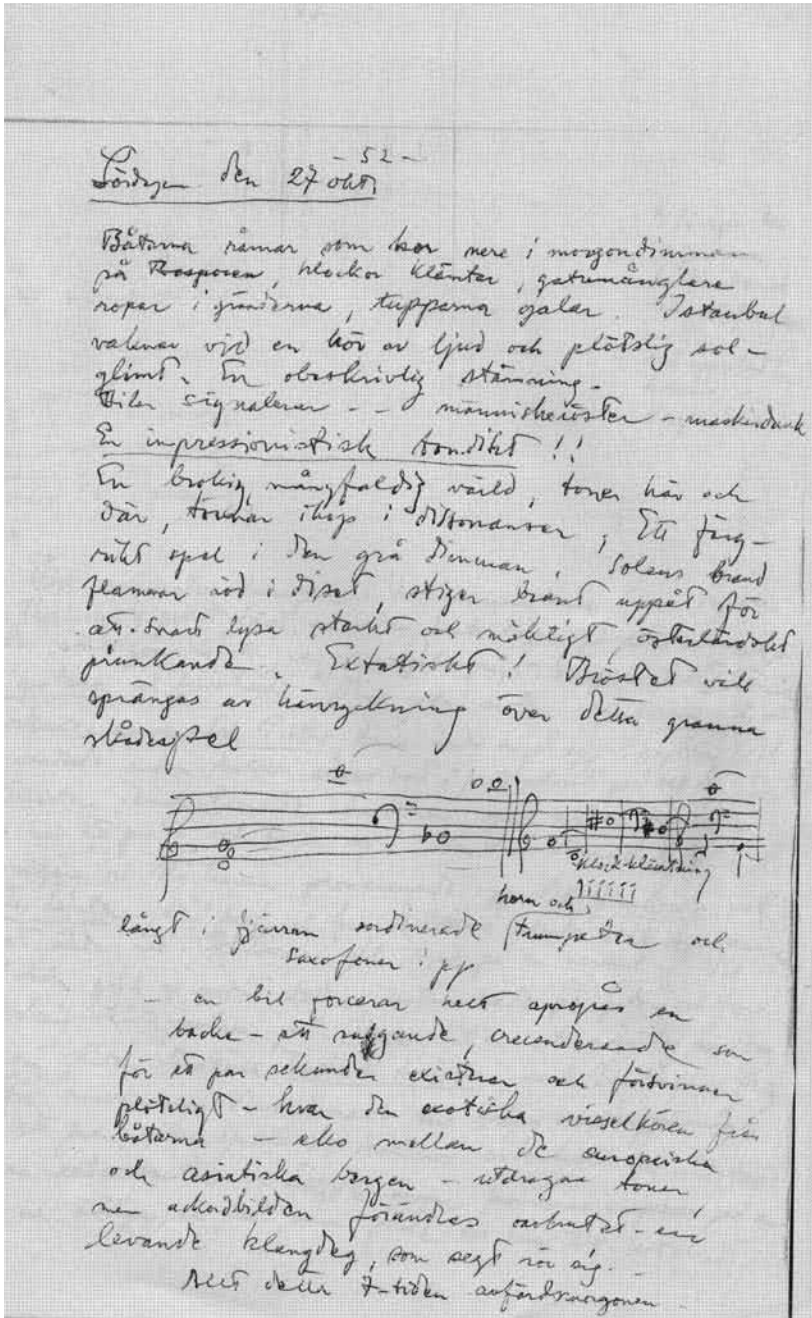 - 52 -
Lördagen den 27 okt.
Båtarna råmar som kor nere i morgondimman
på Bosporen, klockor klämtar, gatumånglare
ropar i gränderna, tupparna galar. Istanbul
vaknar vid en kör av ljud och plötslig sol-
glimt. En obeskrivlig stämning.
Bilar signalerar - - människoröster - maskindunk
En impressionistisk tondikt !!
En brokig, mångfaldig värld, toner här och
där, tonar ihop i dissonanser, Ett färg-
rikt spel i den grå dimman. Solens brand
flammar röd i diset, stiger brant uppåt för
att snart lysa starkt och mäktigt, österländskt
prunkande. Extatiskt! Bröstet vill
sprängas av hänryckning över detta granna
skådespel
klockklämtning
horn och
långt i fjärran sordinerade trumpeter och
saxofoner! pp
- en bil forcerar helt apropås en
backe - ett sugande, crescenderande som
för ett par sekunder existerar och försvinner
plötsligt - hvar den exotiska visselkören från
båtarna - eko mellan de europeiska
och asiatiska bergen - utdragna toner,
men ackordbilden förändras oavbrutet - en
levande klangdeg, som segt rör sig.
Allt detta 7-tiden avfärdsmorgonen